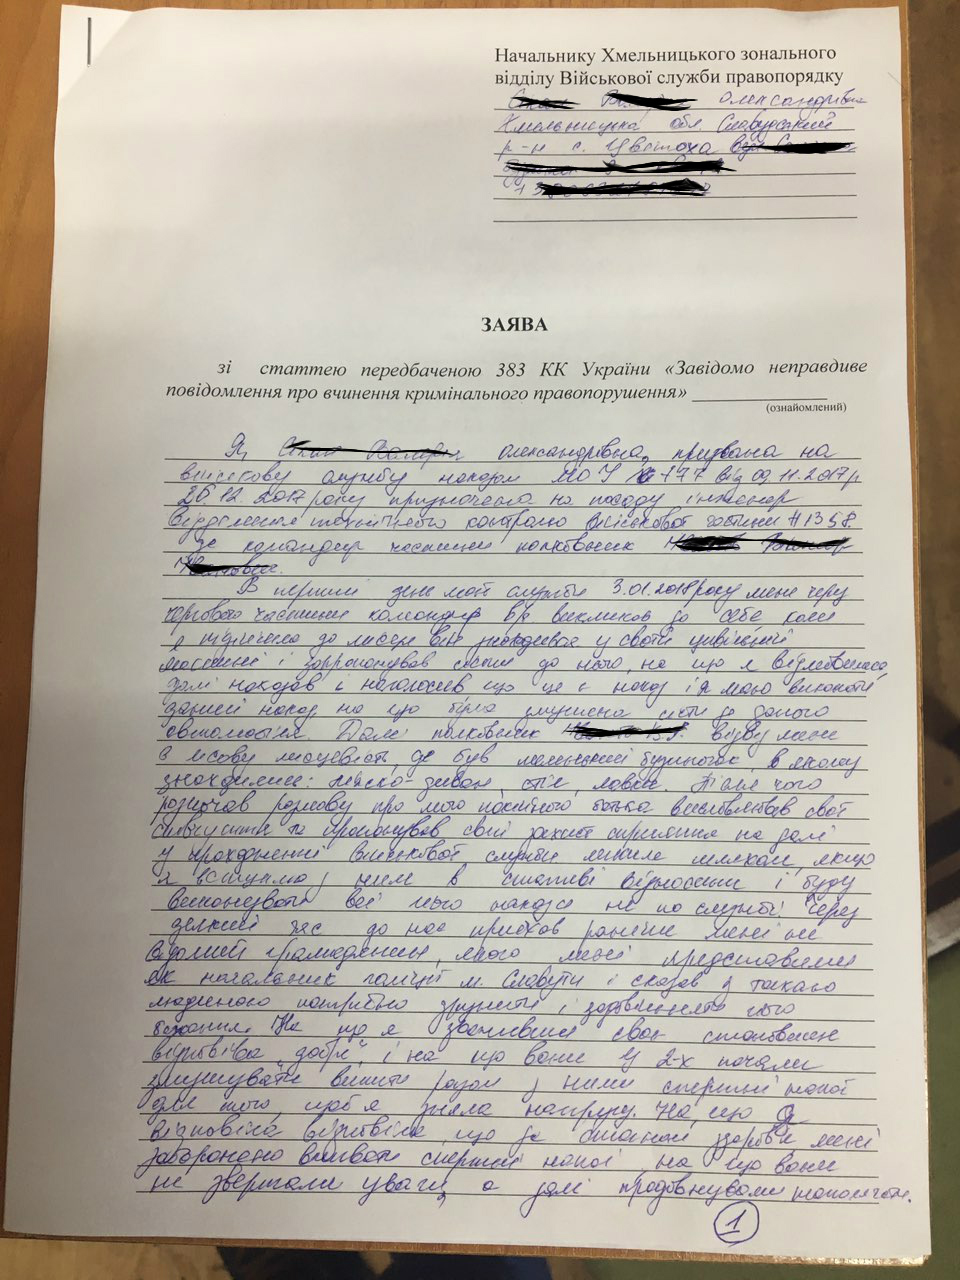 Начальнику Хмельницького зонального
відділу Військової служби правопорядку
Олександрівна
Хмельницька обл. Славутський
р-н с. Цвітоха
ЗАЯВА
зі статтею передбаченою 383 КК України «Завідомо неправдиве
повідомлення про вчинення кримінального правопорушення»
(ознайомлений)
Я, Олександрівна, призвана на
військову службу наказом МОУ № 777 від 09.11.2017р
26.12.2017 року призначена на посаду інженер
Відділення технічного контролю військової частини А1358
де командир частини полковник
В перший день моєї служби 3.01.2018 року мене через
чергового частини командир в/ч викликав до себе коли
я підійшла до він знаходився у своїй цивільній
машині і запропонував сісти до нього, на що я відмовилася,
далі наказав і наголосив що це є наказ і я маю виконати
даний наказ на що була змушена сісти до даного
автомобіля. Далі полковник відвіз мене
в лісову місцевість де був маленький будиночок, в якому
знаходились: ліжко-диван, стіл, лавка. Після чого
розпочав розмову про мого покійного батька висловлював свої
співчуття та пропонував свій захист сприяння на далі
у проходженні військової служби лише шляхом, якщо
я вступлю з ним в статеві відносини і буду
виконувати всі його накази не по службі. Через
деякий час до нас приїхав раніше мені не
відомий громадянин, якого мені представили
як начальник поліції м. Славути і сказав з такою
людиною потрібно дружити і задовільняти його
бажання. На що я своє становлення
відповіла „добре“, і на що вони у 2-х почали
змушувати випити разом з ними спиртні напої
для того, щоб я зняла напругу. На що я
відповіла, що за станом здоров'я мені
заборонено вживати спиртні напої на що вони
не звертали уваги, а далі продовжували
1